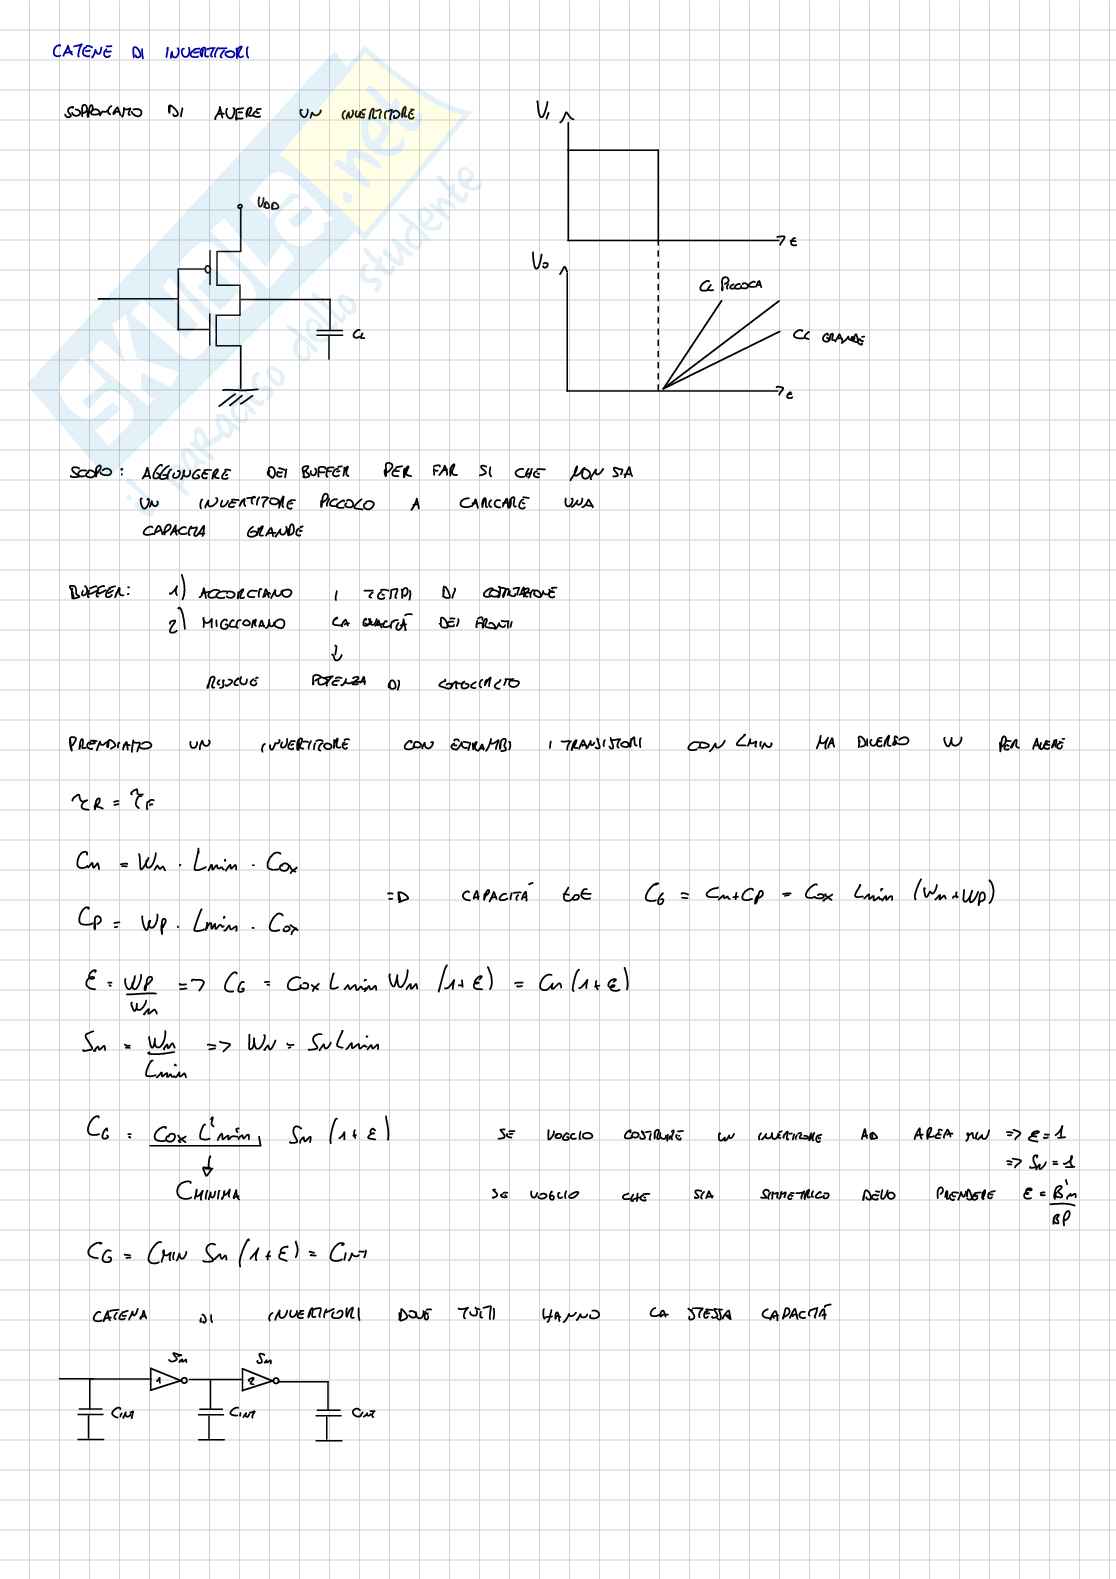 CATENE DI INVERTITORI
SUPPONIAMO DI AVERE UN INVERTITORE
VDD
CL
Vi
t
Vo
CL PICCOLA
CL GRANDE
t
SKUOLA.net
il paradiso dello studente
SCOPO: AGGIUNGERE DEI BUFFER PER FAR SI CHE NON SIA
UN INVERTITORE PICCOLO A CARICARE UNA
CAPACITA GRANDE
BUFFER: 1) ACCORCIANO I TEMPI DI COMMUTAZIONE
2) MIGLIORANO LA QUALITÀ DEI FRONTI
↓
RIDUCE POTENZA DI CORTOCIRCUITO
PRENDIAMO UN INVERTITORE CON ENTRAMBI I TRANSISTORI CON LMIN MA DIVERSO W PER AVERE
τR = τF
Cn = Wn · Lmin · Cox
=D CAPACITÀ tot CG = Cn+CP = Cox Lmin (Wn+WP)
CP = WP · Lmin · Cox
ε = WP/Wn => CG = Cox Lmin Wn (1+ε) = Cn (1+ε)
Sn = Wn/Lmin => WN = SN Lmin
CG = Cox L²min Sn (1+ε)
SE VOGLIO COSTRUIRE UN INVERTITORE AD AREA MIN => ε=1
=> SN=1
↓
CMINIMA
SE VOGLIO CHE SIA SIMMETRICO DEVO PRENDERE ε = B'n/BP
CG = CMIN Sn (1+ε) = CINT
CATENA DI INVERTITORI DOVE TUTTI HANNO LA STESSA CAPACITÀ
Sn Sn
1 2
CINT CINT CINT